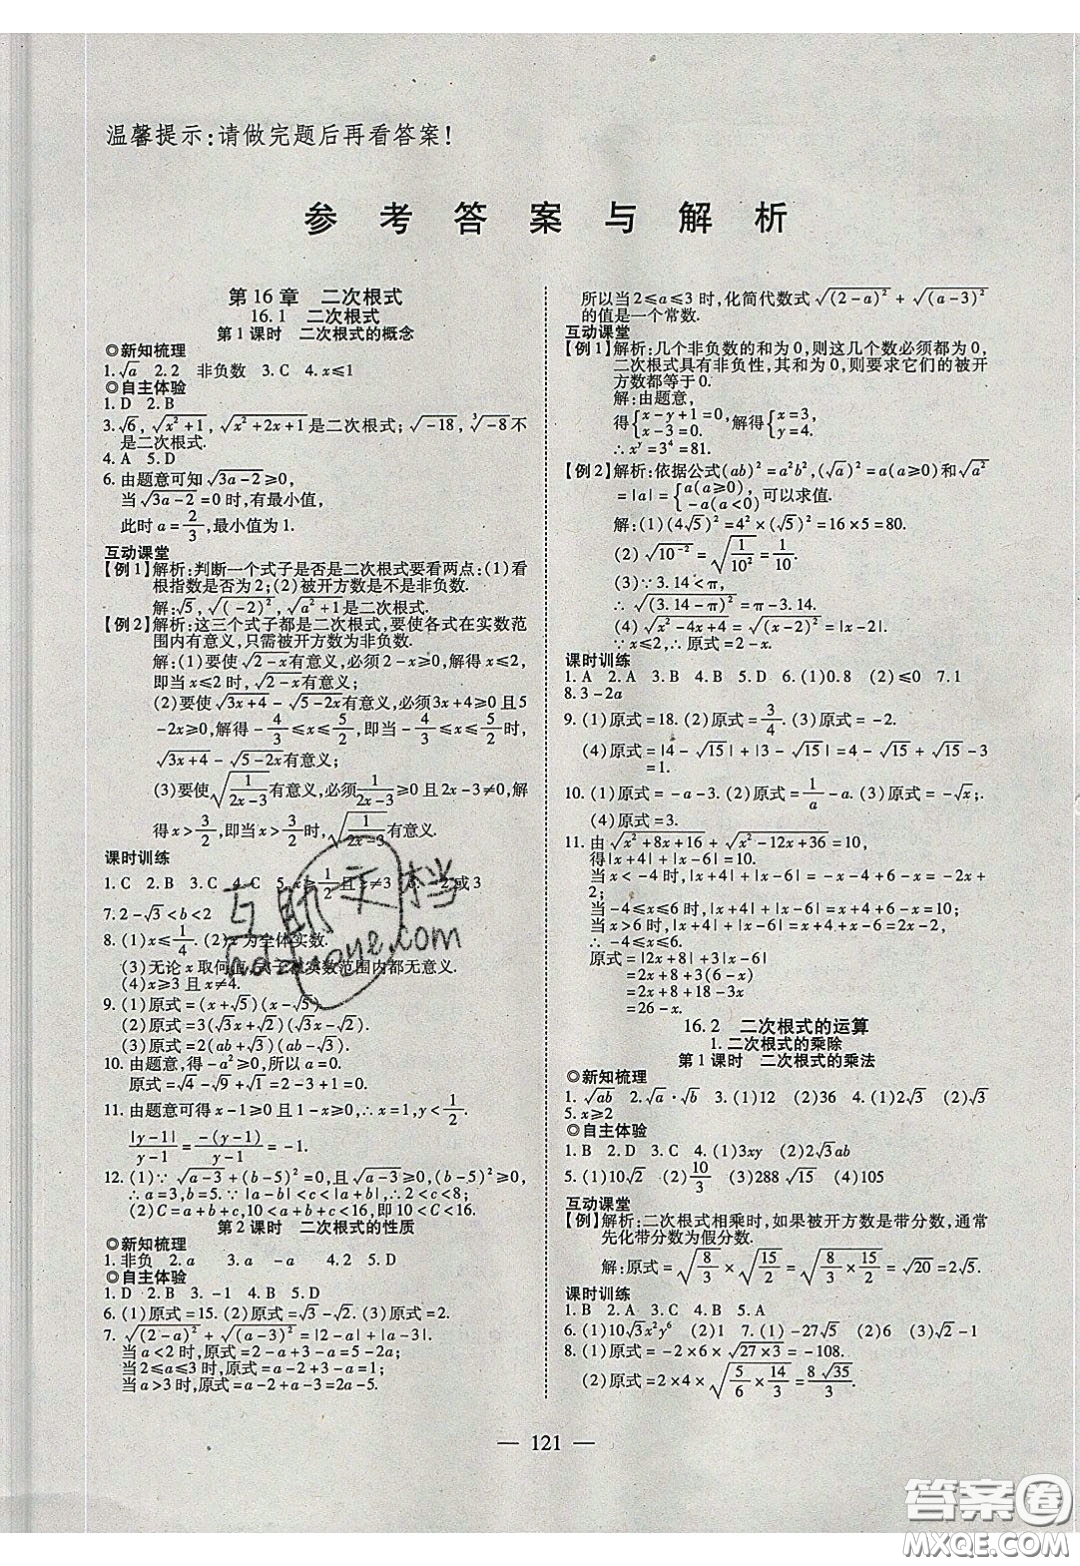 温馨提示:请做完题后再看答案!
参考答案与解析
第16章 二次根式
16.1 二次根式
第1课时 二次根式的概念
◎新知梳理
1. √a 2. 2 非负数 3. C 4. x≤1
◎自主体验
1. D 2. B
3. √6, √(x²+1), √(x²+2x+1)是二次根式; √(-18), ³√(-8)不
是二次根式.
4. A 5. D
6. 由题意可知√(3a-2)≥0,
当√(3a-2)=0时,有最小值,
此时a=2/3,最小值为1.
互动课堂
【例1】解析:判断一个式子是否是二次根式要看两点:(1)看
根指数是否为2;(2)被开方数是不是非负数.
解:√5, √(-2)², √(a²+1)是二次根式.
【例2】解析:这三个式子都是二次根式,要使各式在实数范
围内有意义,只需被开方数为非负数.
解:(1)要使√(2-x)有意义,必须2-x≥0,解得x≤2,
即当x≤2时,√(2-x)有意义;
(2)要使√(3x+4)-√(5-2x)有意义,必须3x+4≥0且5
-2x≥0,解得-4/3≤x≤5/2,即当-4/3≤x≤5/2时,
√(3x+4)-√(5-2x)有意义;
(3)要使√(1/(2x-3))有意义,必须1/(2x-3)≥0且2x-3≠0,解
得x>3/2,即当x>3/2时,√(1/(2x-3))有意义.
课时训练
1. C 2. B 3. C 4. C 5. x≥1/2且x≠3 6. -2或3
7. 2-√3<b<2
8. (1)x≤1/4. (2)x为全体实数.
(3)无论x取何值,式子在实数范围内都无意义.
(4)x≥3且x≠4.
9. (1)原式=(x+√5)(x-√5).
(2)原式=3(√3x+√2)(√3x-√2).
(3)原式=2(ab+√5)(ab-√5).
10. 由题意,得-a²≥0,所以a=0.
原式=√4-√9+√1=2-3+1=0.
11. 由题意可得x-1≥0且1-x≥0,∴x=1,y<1/2.
|y-1|/(y-1)=-(y-1)/(y-1)=-1.
12. (1)∵√(a-3)+(b-5)²=0且√(a-3)≥0,(b-5)²≥0,
∴a=3,b=5.∵|a-b|<c<|a+b|,∴2<c<8;
(2)C=a+b+c,10<a+b+c<16,即10<C<16.
第2课时 二次根式的性质
◎新知梳理
1. 非负 2. a 3. a -a 4. C 5. D
◎自主体验
1. D 2. B 3. -1 4. B 5. D
6. (1)原式=15. (2)原式=√3-√2. (3)原式=2.
7. √(2-a)²+√(a-3)²=|2-a|+|a-3|
当a<2时,原式=2-a+3-a=5-2a;
当2≤a≤3时,原式=a-2+3-a=1;
当a>3时,原式=a-2+a-3=2a-5.
所以当2≤a≤3时,化简代数式√(2-a)²+√(a-3)²
的值是一个常数.
互动课堂
【例1】解析:几个非负数的和为0,则这几个数必须都为0.
二次根式具有非负性,其和为0,则要求它们的被开
方数都等于0.
解:由题意,
得{x-y+1=0, x-3=0. 解得{x=3, y=4.
∴xʸ=3⁴=81.
【例2】解析:依据公式(ab)²=a²b²,(√a)²=a(a≥0)和√a²
=|a|={a(a≥0) -a(a<0)可以求值.
解:(1)(4√5)²=4²×(√5)²=16×5=80.
(2)√10⁻²=√(1/10²)=1/10.
(3)∵3.14<π,
∴√(3.14-π)²=π-3.14.
(4)√(x²-4x+4)=√(x-2)²=|x-2|.
∵x≤2,∴原式=2-x.
课时训练
1. A 2. A 3. B 4. B 5. D 6. (1)0.8 (2)≤0 7. 1
8. 3-2a
9. (1)原式=18. (2)原式=3/4. (3)原式=-2.
(4)原式=|4-√15|+|3-√15|=4-√15+√15-3
=1.
10. (1)原式=-a-3. (2)原式=1/a-a. (3)原式=-√x;.
(4)原式=3.
11. 由√(x²+8x+16)+√(x²-12x+36)=10,
得|x+4|+|x-6|=10.
当x<-4时,|x+4|+|x-6|=-x-4-x+6=-2x+
2;
当-4≤x≤6时,|x+4|+|x-6|=x+4-x+6=10;
当x>6时,|x+4|+|x-6|=x+4+x-6=2x-2.
∴-4≤x≤6.
原式=|2x+8|+3|x-6|
=2x+8+3(6-x)
=2x+8+18-3x
=26-x.
16.2 二次根式的运算
1. 二次根式的乘除
第1课时 二次根式的乘法
◎新知梳理
1. √ab 2. √a·√b 3. (1)12 (2)36 4. (1)2 (2)√3
5. x≥2
◎自主体验
1. B 2. D 3. C 4. (1)3xy (2)2√3ab
5. (1)10√2 (2)10/3 (3)288 (4)105
互动课堂
【例】解析:二次根式相乘时,如果被开方数是带分数,通常
先化带分数为假分数.
解:原式=√(8/3)×√(15/2)=√(8/3×15/2)=√20=2√5.
课时训练
1. B 2. A 3. D 4. B 5. A
6. (1)10√3x²y⁶ (2)1 7. (1)-27√5 (2)6 (3)√2-1
8. (1)原式=-2×6×√(27×3)=-108.
(2)原式=2×4×√(5/6×14/3)=8√35/3.
— 121 —
互助文档
hdzuoye.com
答案圈
MXQE.COM